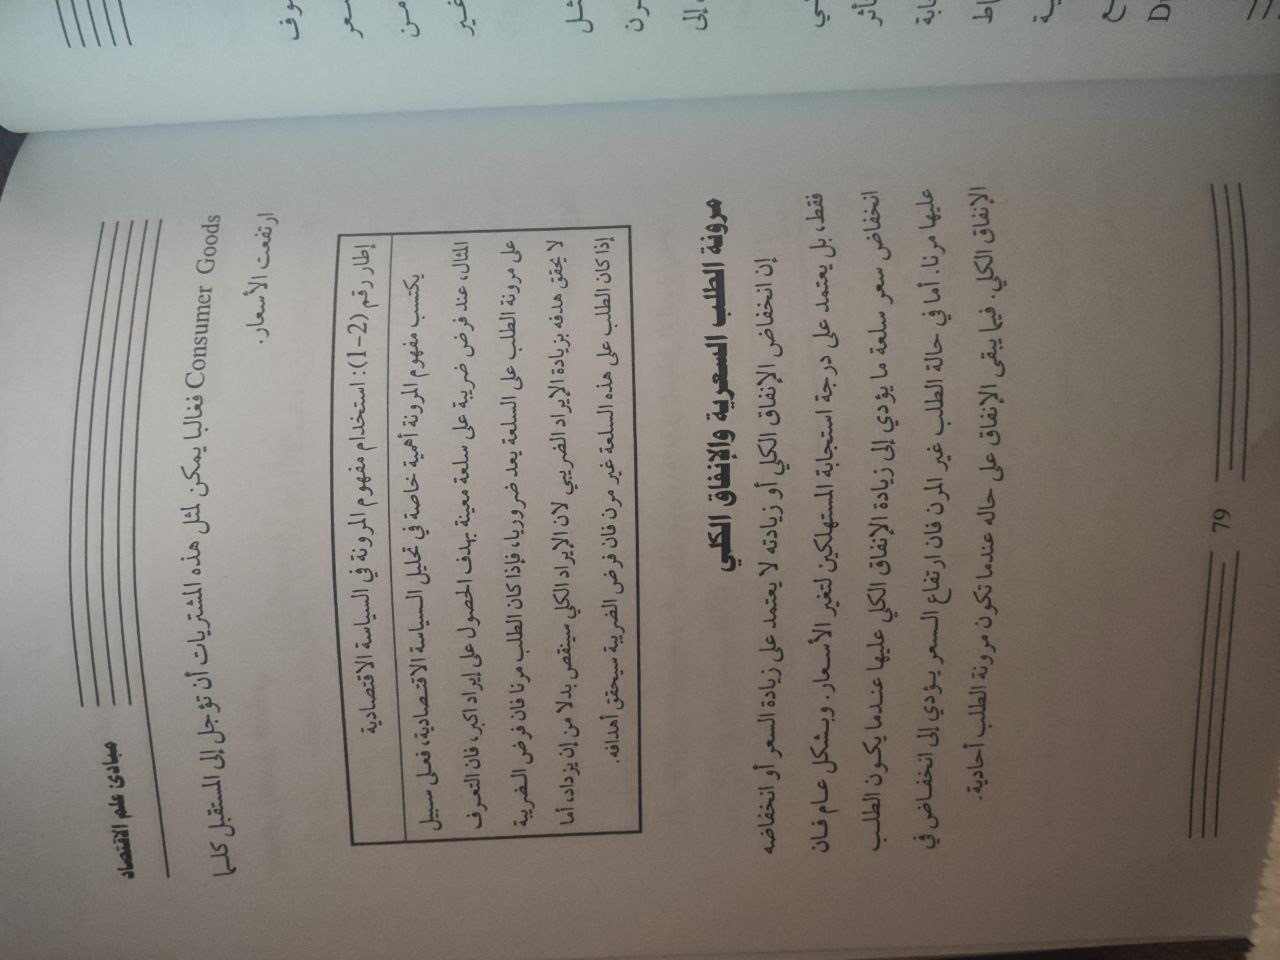 مبادئ علم الاقتصاد
Consumer Goods فغالبا يمكن لمثل هذه المشتريات أن تؤجل إلى المستقبل كلما
ارتفعت الأسعار.
إطار رقم (2-1): استخدام مفهوم المرونة في السياسة الاقتصادية
يكتسب مفهوم المرونة أهمية خاصة في تحليل السياسة الاقتصادية، فعلى سبيل
المثال، عند فرض ضريبة على سلعة معينة بهدف الحصول على إيراد اكبر، فان التعرف
على مرونة الطلب على السلعة يعد ضروريا، فإذا كان الطلب مرنا فان فرض الضريبة
لا يحقق هدفه بزيادة الإيراد الضريبي لان الإيراد الكلي سينقص بدلا من إن يزداد، أما
إذا كان الطلب على هذه السلعة غير مرن فان فرض الضريبة سيحقق أهدافه.
مرونة الطلب السعرية والإنفاق الكلي
إن انخفاض الإنفاق الكلي أو زيادته لا يعتمد على زيادة السعر أو انخفاضه
فقط، بل يعتمد على درجة استجابة المستهلكين لتغير الأسعار. وبشكل عام فان
انخفاض سعر سلعة ما يؤدي إلى زيادة الإنفاق الكلي عليها عندما يكون الطلب
عليها مرنا. أما في حالة الطلب غير المرن فان ارتفاع السعر يؤدي إلى انخفاض في
الإنفاق الكلي. فيما يبقى الإنفاق على حاله عندما تكون مرونة الطلب أحادية.
79